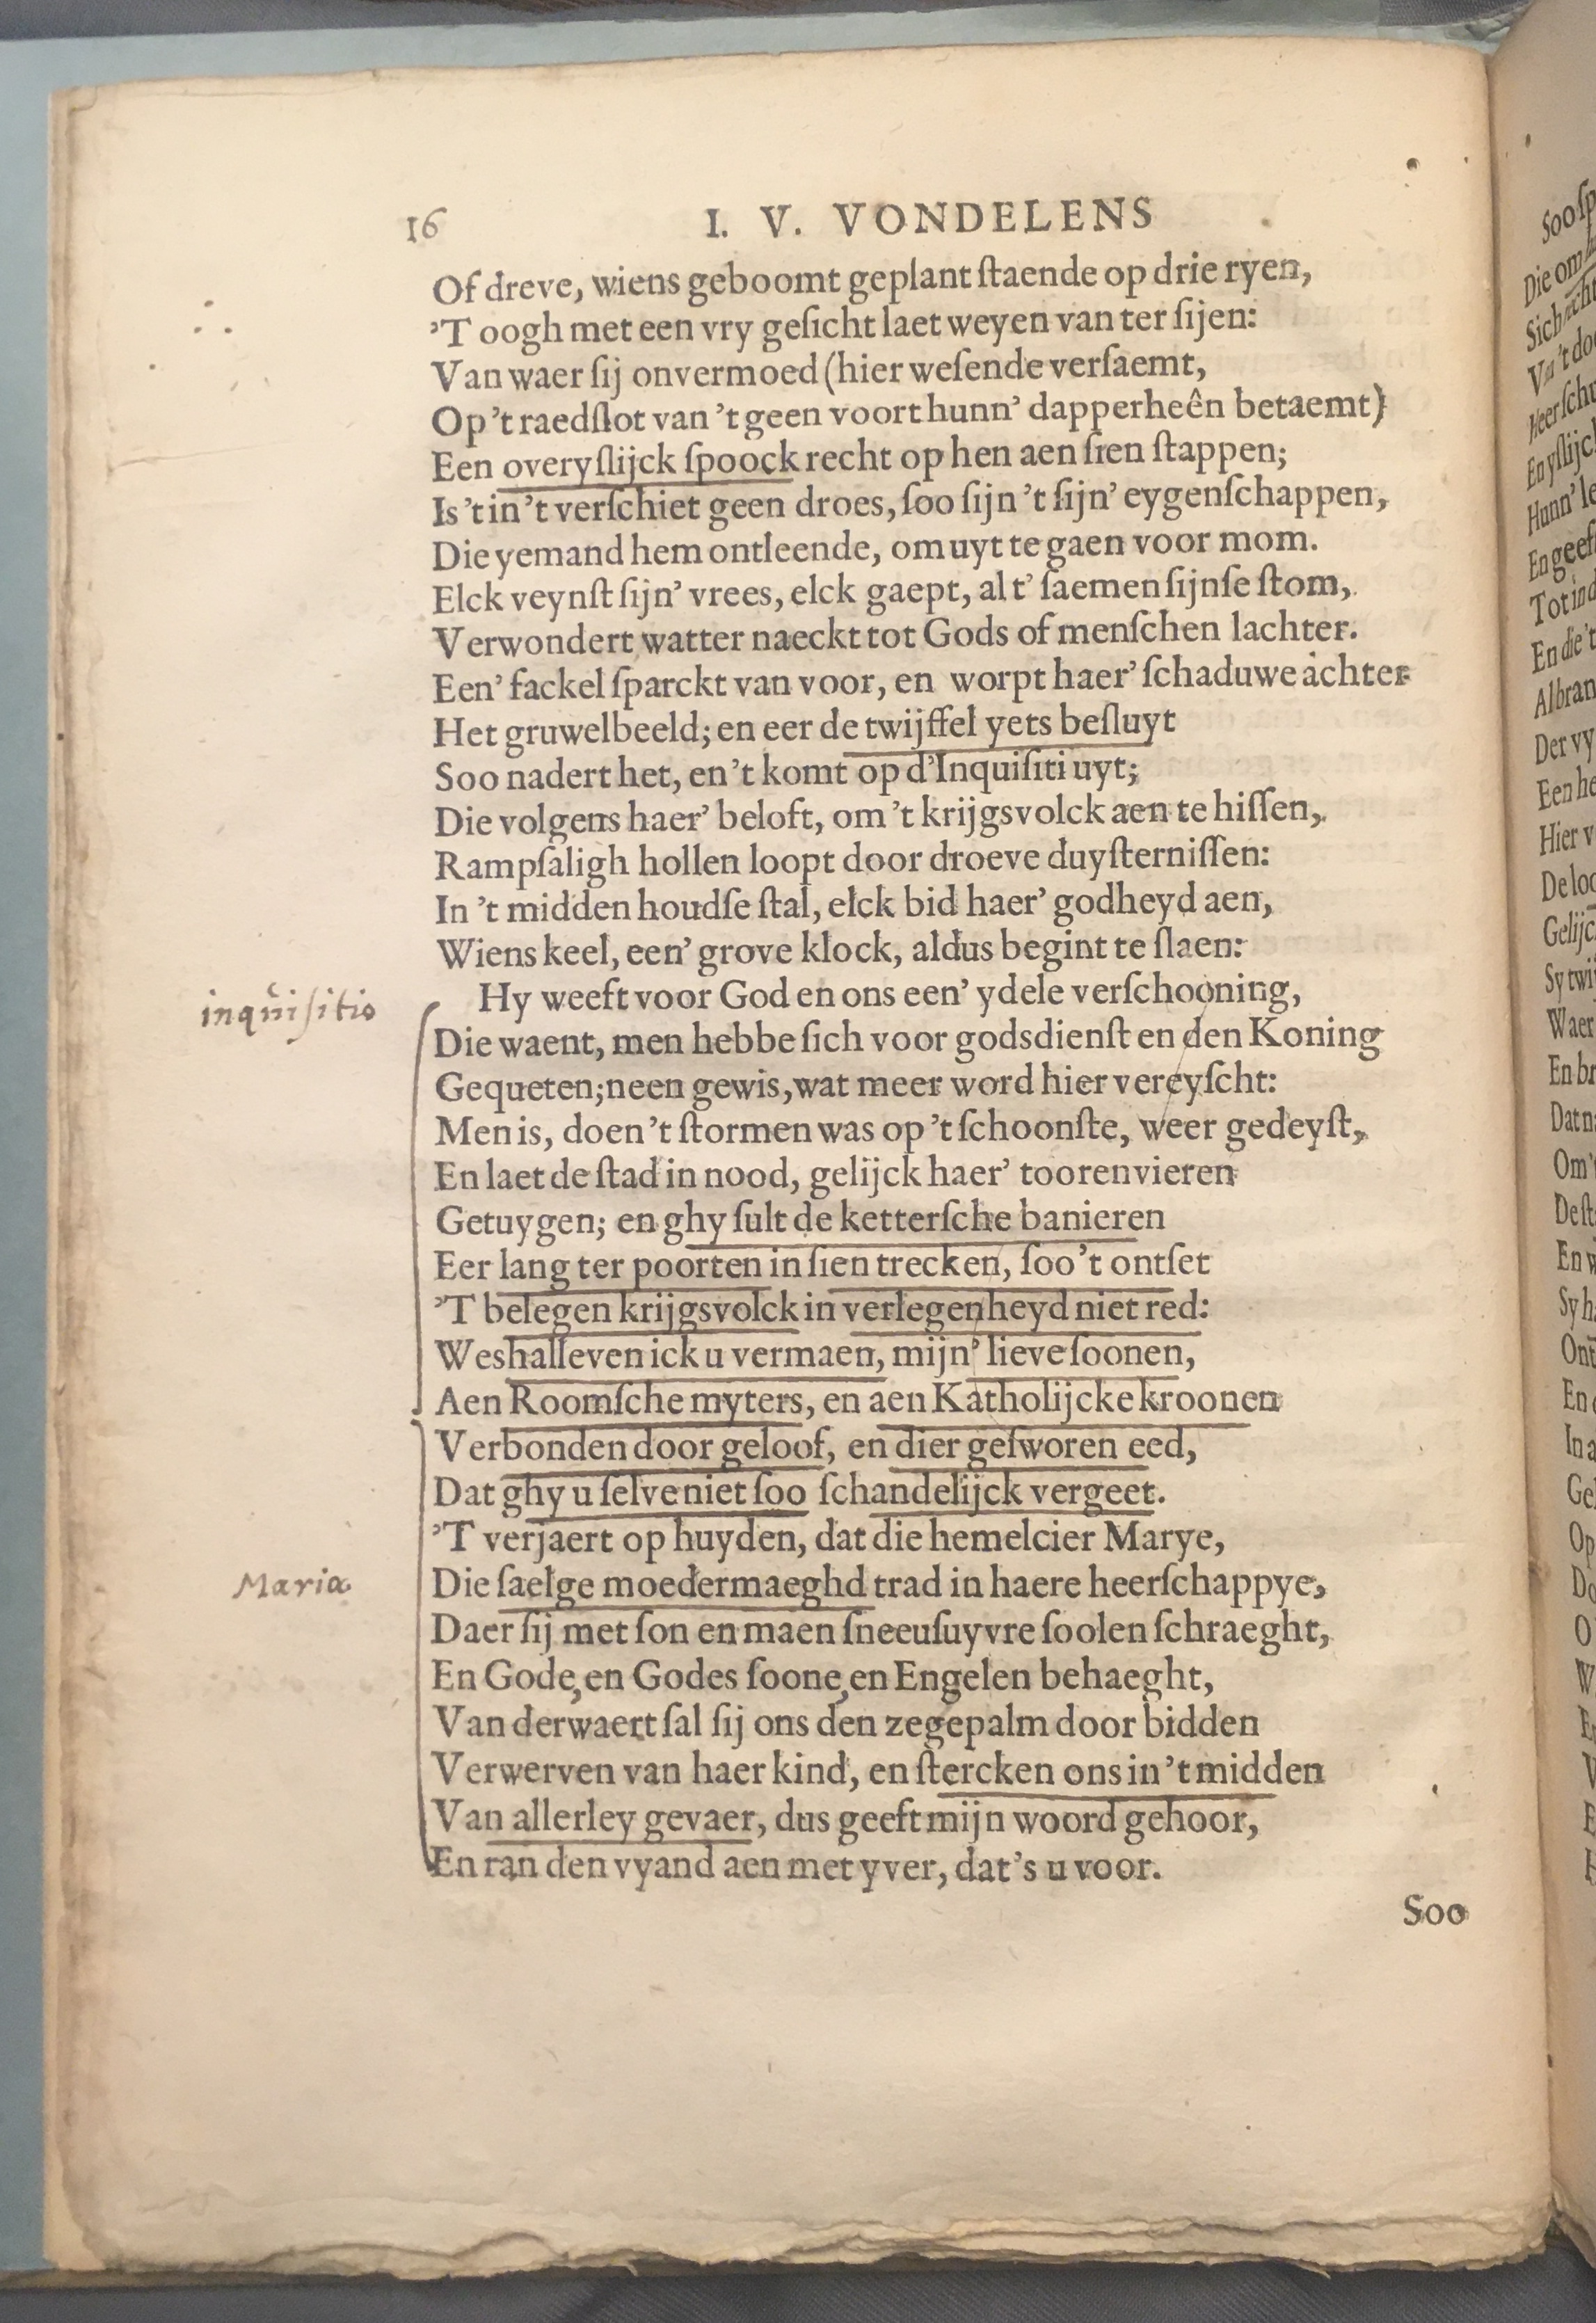 16 I. V. VONDELENS
Of dreve, wiens geboomt geplant ſtaende op drie ryen,
'T oogh met een vry geſicht laet weyen van ter ſijen:
Van waer ſij onvermoed (hier weſende verſaemt,
Op 't raedſlot van 't geen voort hunn' dapperheên betaemt)
Een overyſlijck ſpoock recht op hen aen ſien ſtappen;
Is 't in 't verſchiet geen droes, ſoo ſijn 't ſijn' eygenſchappen,
Die yemand hem ontleende, om uyt te gaen voor mom.
Elck veynſt ſijn' vrees, elck gaept, al t' ſaemen ſijnſe ſtom,
Verwondert watter naeckt tot Gods of menſchen lachter.
Een' fackel ſparckt van voor, en worpt haer' ſchaduwe achter
Het gruwelbeeld; en eer de twijffel yets beſluyt
Soo nadert het, en 't komt op d'Inquiſiti uyt;
Die volgens haer' beloft, om 't krijgsvolck aen te hiſſen,
Rampſaligh hollen loopt door droeve duyſterniſſen:
In 't midden houdſe ſtal, elck bid haer' godheyd aen,
Wiens keel, een' grove klock, aldus begint te ſlaen:
inquiſitio
Hy weeft voor God en ons een' ydele verſchooning,
Die waent, men hebbe ſich voor godsdienſt en den Koning
Gequeten; neen gewis, wat meer word hier vereyſcht:
Men is, doen 't ſtormen was op 't ſchoonſte, weer gedeyſt,
En laet de ſtad in nood, gelijck haer' toorenvieren
Getuygen; en ghy ſult de ketterſche banieren
Eer lang ter poorten in ſien trecken, ſoo 't ontſet
'T belegen krijgsvolck in verlegenheyd niet red:
Weshalleven ick u vermaen, mijn' lieve ſoonen,
Aen Roomſche myters, en aen Katholijcke kroonen
Verbonden door geloof, en dier geſworen eed,
Dat ghy u ſelve niet ſoo ſchandelijck vergeet.
'T verjaert op huyden, dat die hemelcier Marye,
Maria
Die ſaelge moedermaeghd trad in haere heerſchappye,
Daer ſij met ſon en maen ſneeuſuyvre ſoolen ſchraeght,
En Gode, en Godes ſoone, en Engelen behaeght,
Van derwaert ſal ſij ons den zegepalm door bidden
Verwerven van haer kind, en ſtercken ons in 't midden
Van allerley gevaer, dus geeft mijn woord gehoor,
En ran den vyand aen met yver, dat's u voor.
Soo